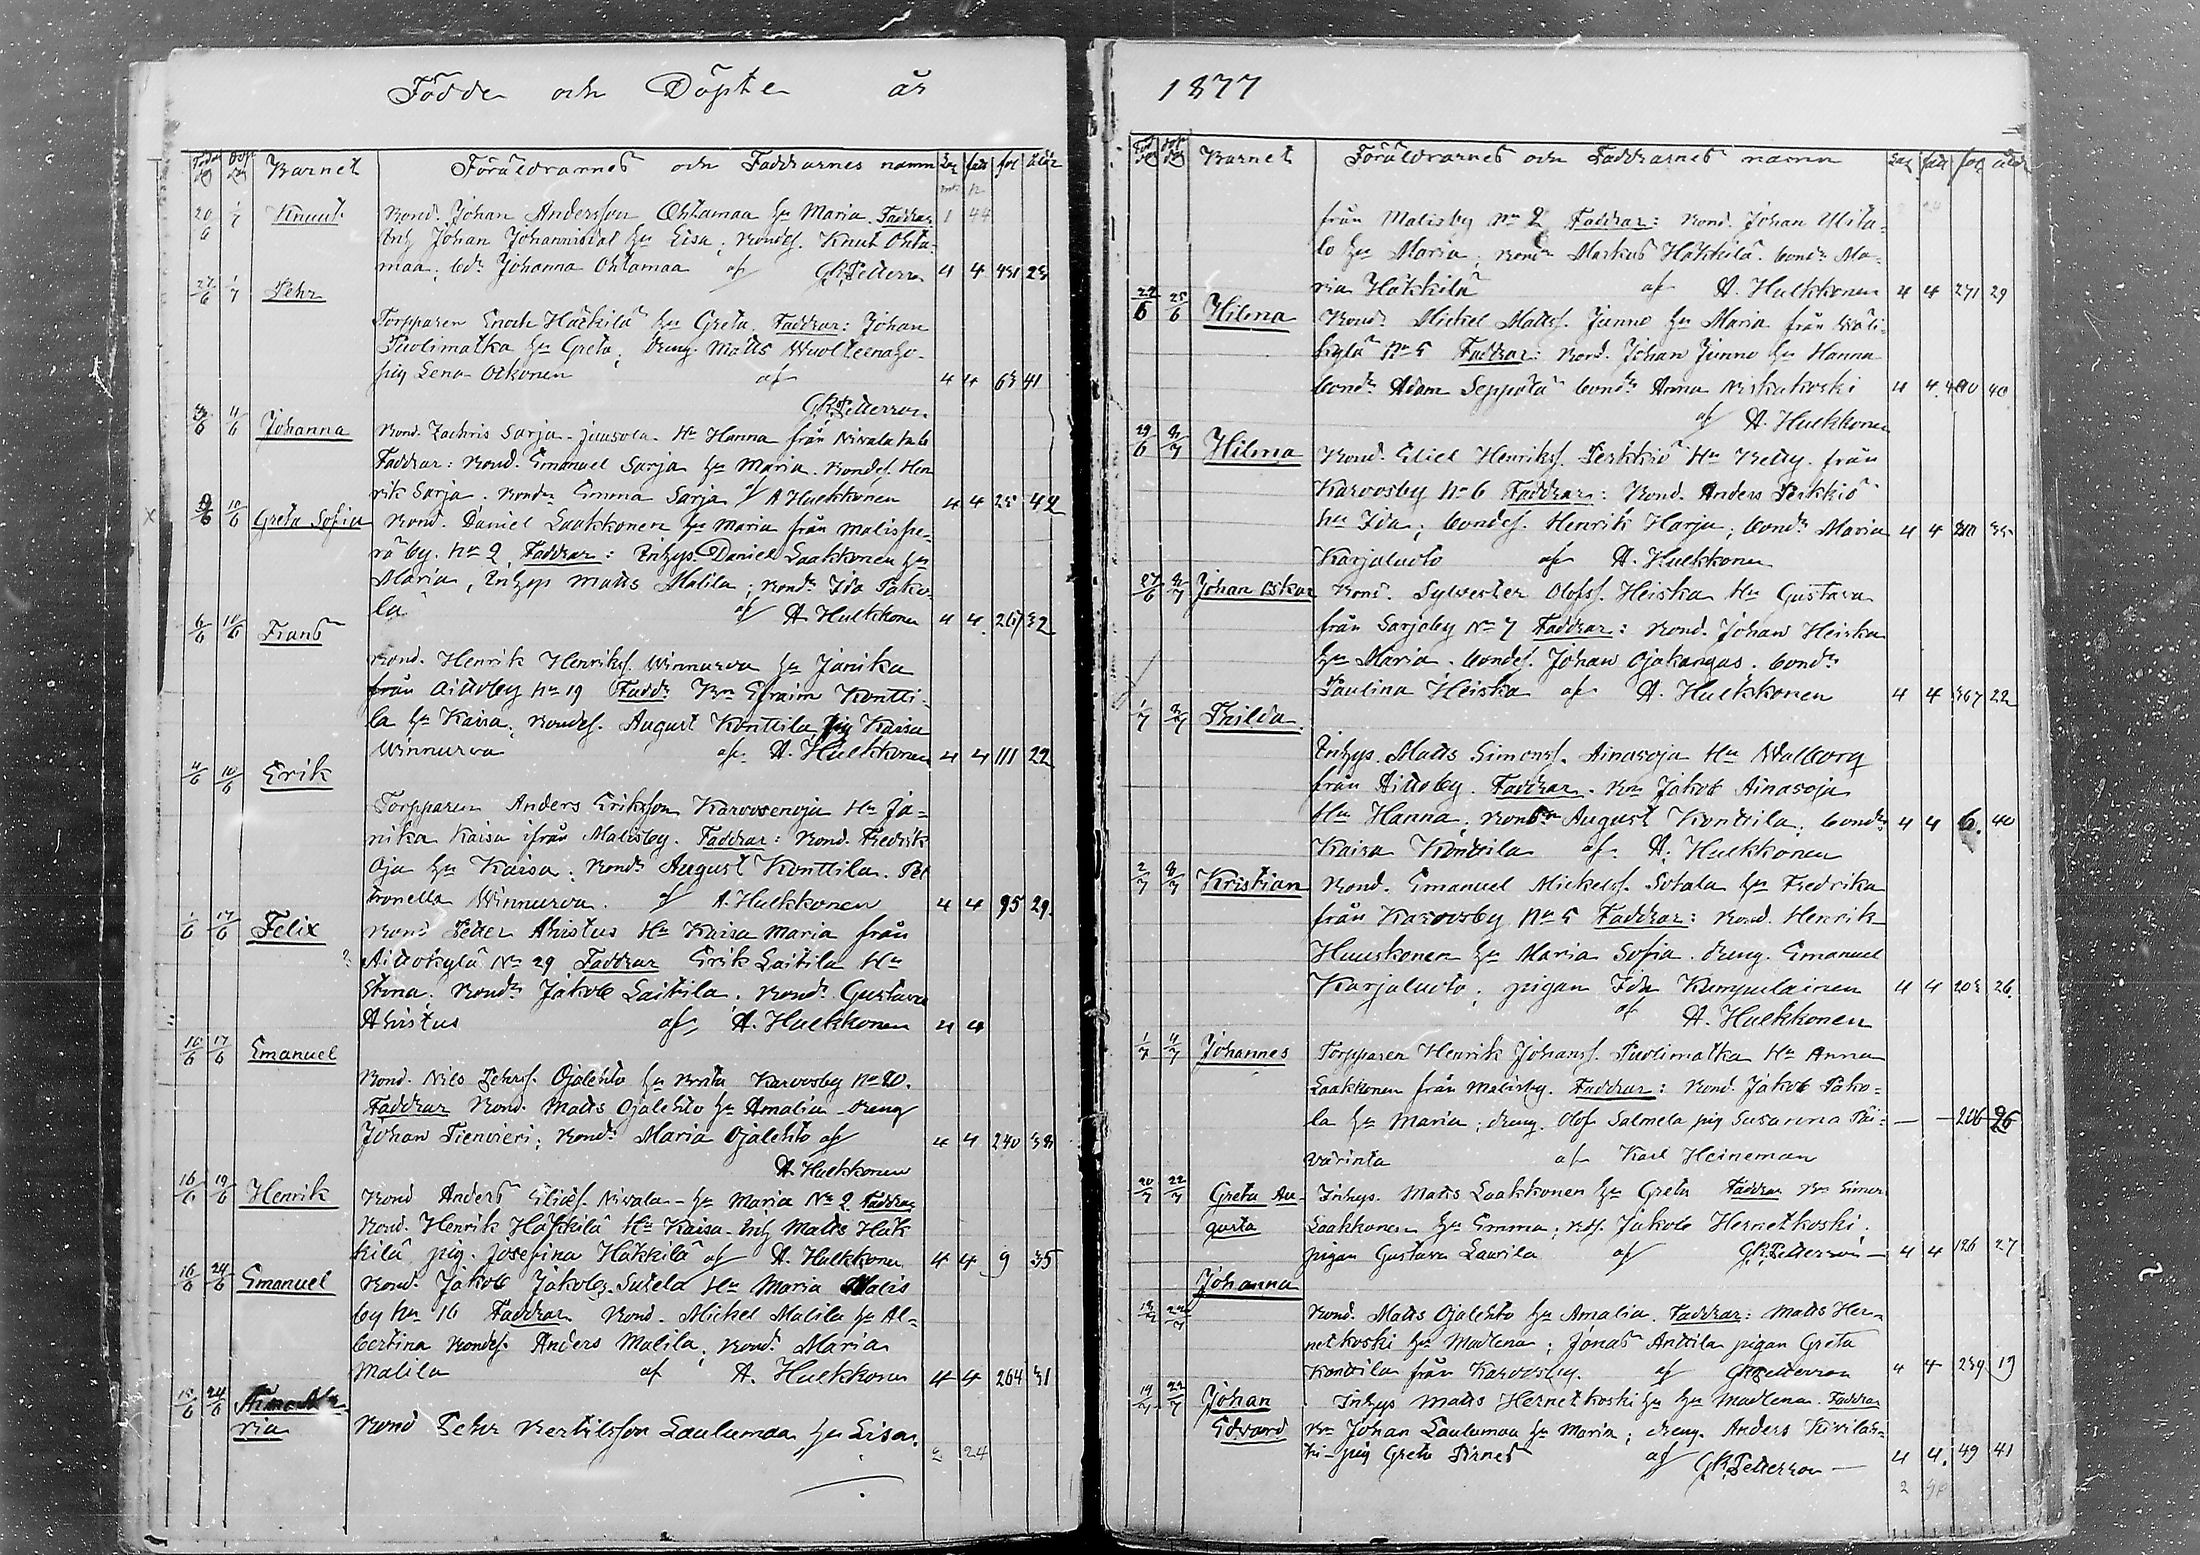 Födde och Döpte år
Barnet Föräldrarnes och Faddrarnes namn fol
20/6 1/7 Knut Bond. Johan Andersson Ohtamaa hu Maria. Faddrar 1 44
Inh Johan Johannisdal hu Lisa; Bondes. Knut Ohta-
maa; bdr Johanna Ohtamaa af G.R. Petterson 4 4 431 23
27/6 1/7 Pehr
Torpparen Enoch Häkkilä hu Greta Faddrar: Johan
Puolimatka hu Greta; dreng Matts Wuolteenaho-
pig Lena Oikonen af 4 4 63 41
G.R. Petterson.
Johanna Bond. Zachris Sarja-Juusola Hu Hanna från Nivala No 6
Faddrar: Bond. Emanuel Sarja hu Maria. Bondes. Hen
rik Sarja. Bondr Emma Sarja af A Hulkkonen 4 4 25 42
10/6 Greta Sofia Bond. Daniel Laakkonen hu Maria från Malispe-
rä by. No 2, Faddrar: Inhys. Daniel Laakkonen hu
Maria, Inhys Matts Malila; Bondr Ida Pako
la af A Hulkkonen 4 4 267 32
6/6 10/6 Frans
Bond. Henrik Henrikss. Winnurva hu Janika
från Aittoby No 19 Faddr Bn Efraim Kontti-
la hu Kaisa. Bondes. August Konttila, pig Kaisa
Winnurva af A. Hulkkonen 4 4 111 22
4/6 10/6 Erik
Torpparen Anders Eriksson Karvosenoja Hu Ja-
nika Kaisa ifrån Malisby. Faddrar: Bond. Fredrik
Oja hu Kaisa. Bonds August Konttila. Pet
tronella Winnurva. af A. Hulkkonen 4 4 95 29.
1/6 17/6 Felix Bond Petter Ahistus Hu Kaisa Maria från
Aittokylä No 29 Faddrar Erik Laitila Hu
Stina. Bonds Jakob Laitila. Bonds Gustava
Ahistus af A. Hulkkonen 4 4
10/6 17/6 Emanuel
Bond. Nils Pehrss. Ojalehto hu Brita Karvosby No 20.
Faddrar Bond. Matts Ojalehto hu Amalia - dreng
Johan Pienvieri; Bondr Maria Ojalehto af 4 4 240 38
A. Hulkkonen
16/6 19/6 Henrik Bond Anders Eliaes. Nivala - hu Maria No 2 Faddrar
Bond. Henrik Häkkilä Hu Kaisa - Inh Matts Häk
kilä pig. Josefina Häkkilä af A. Hulkkonen 4 4 9 35
16/6 24/6 Emanuel Bond. Jakob Jakobs. Sutela Hu Maria Malis
by No 16 Faddrar Bond. Mickel Malila hu Al-
bertina Bondes. Anders Malila; Bondr Maria
Malila af A. Hulkkonen 4 4 264 31
15/6 24/6 Anna Ma-
ria Bond Pehr Bertilsson Laulumaa hu Lisa. 2 24
1877
Barnet Föräldrarnes och Faddrarnes namn fol
från Malisby No 2 Faddrar: Bond. Johan Ylita-
lo hu Maria; Bonds Markus Häkkilä. bondr Ma-
ria Häkkilä af A. Hulkkonen 4 4 271 29
22/6 25/6 Hilma Bond. Mickel Matts. Junno hu Maria från Wäli-
kylä No 5 Faddrar: Bond. Johan Junno hu Hanna
bonds Adam Seppälä bondr Anna Niskakoski 4 4 40
af A. Hulkkonen
29/6 Hilma Bond. Eliel Henrikss. Perkkiö Hu Betty. från
Karvosby No 6 Faddrar: Bond. Anders Perkkiö
hu Ida; bondes. Henrik Harju; bondr Maria 4 4 210 35
Karjaluoto af A. Hulkkonen
27/6 Johan Oskar Bond. Sylvester Olofss. Heiska Hu Gustava
från Sarjaby No 7 Faddrar: Bond. Johan Heiska
hu Maria. bondes. Johan Ojakangas. bondr
Paulina Heiska af A. Hulkkonen 4 4 367 22
1/7 Thilda
Inhys. Matts Simonss. Ainasoja Hu Walborg
från Aittoby. Faddrar. Bn Jakob Ainasoja
Hu Hanna; Bondsn August Konttila; bondr 4 4 6. 40
Kaisa Konttila af A. Hulkkonen
2/7 8/7 Kristian Bond. Emanuel Mickelss. Sotala hu Fredrika
från Karvosby No 5 Faddrar: Bond. Henrik
Huuskonen hu Maria Sofia. dreng. Emanuel
Karjaluoto; pigan Ida Kumpulainen 4 4 203 26.
af A. Hulkkonen
1/7 4/7 Johannes Torpparen Henrik Johanss. Puolimatka Hu Anna
Laakkonen från Malisby. Faddrar: Bond. Jakob Pako-
la hu Maria; dreng. Olof Salmela pig Susanna Päi- — — 206 26
värinta af Karl Heineman
20/7 22/7 Greta Au- Inhys. Matts Laakkonen hu Greta Faddrar Bn Simon
gusta Laakkonen hu Emma; Bds. Jakob Hernetkoski;
pigan Gustava Laurila af G.R. Petterson — 4 4 126 27
Johanna
Bond. Matts Ojalehto hu Amalia. Faddrar: Matts Her-
netkoski hu Madlena; Jonas Anttila pigan Greta
Konttila från Karvosby. af G.R. Petterson 4 4 239 19
19/7 22/7 Johan Inhys Matts Hernetkoski hu Madlena. Faddrar
Edvard Bn Johan Laulumaa hu Maria; dreng. Anders Kivilah-
ti - pig Greta Pirnes af G.R. Petterson — 4 4. 49 41